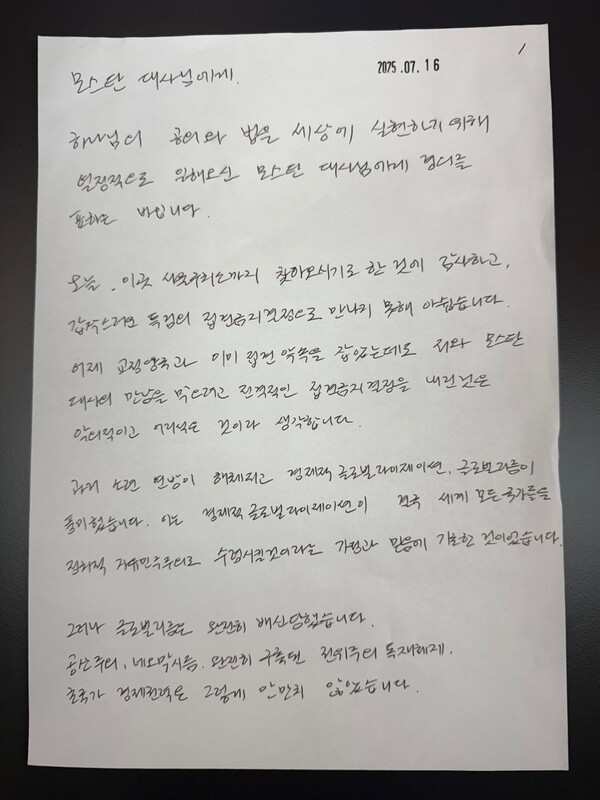 2025.07.16
1
모스탄 대사님에게.
하나님의 공의와 법을 세상에 실현하기 위해
열정적으로 일해오신 모스탄 대사님에게 경의를
표하는 바입니다.
오늘, 이곳 서울구치소까지 찾아오시기로 한 것에 감사하고,
갑작스러운 특검의 접견금지결정으로 만나지 못해 아쉽습니다.
어제 교정당국과 이미 접견 약속을 잡았는데도 저와 모스탄
대사의 만남을 막으려고 전격적인 접견금지결정을 내린것은
악의적이고 어리석은 것이라 생각합니다.
과거 소련 연방이 해체되고 경제적 글로벌라이제이션, 글로벌리즘이
풍미했습니다. 이는 경제적 글로벌라이제이션이 결국 세계 모든 국가들을
정치적 자유민주주의로 수렴시킬것이라는 가정과 믿음에 기초한 것이었습니다.
그러나 글로벌리즘은 완전히 배신당했습니다.
공산주의, 네오막시즘. 완전히 구축된 전위주의 독재체제.
초국가 경제권력은 그렇게 만만치 않았습니다.